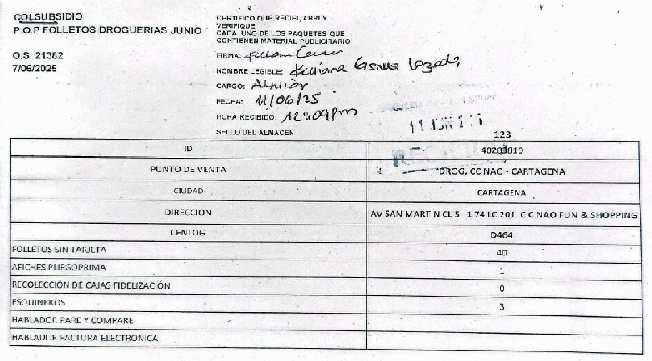 COLSUBSIDIO
P.O.P FOLLETOS DROGUERIAS JUNIO
O.S. 21382
7/06/2025
CERTIFICO QUE RECIBI, ABRI Y
VERIFIQUE
CADA UNO DE LOS PAQUETES QUE
CONTIENEN MATERIAL PUBLICITARIO
FIRMA:
NOMBRE LEGIBLE:
CARGO:
FECHA: 11/06/25
HORA RECIBIDO: 12:09 Pm
SELLO DEL ALMACEN
123
ID 40203019
PUNTO DE VENTA 1 DROG. CC NAO - CARTAGENA
CIUDAD CARTAGENA
DIRECCION AV SAN MARTIN CL 5 - 174 LC 201 C C NAO FUN & SHOPPING
CENTOS D464
FOLLETOS SIN TARJETA 40
AFICHES PLIEGOPRIMA 1
RECOLECCIÓN DE CAJAS FIDELIZACIÓN 0
ESQUINEROS 3
HABLADOR PARE Y COMPARE
HABLADOR FACTURA ELECTRONICA